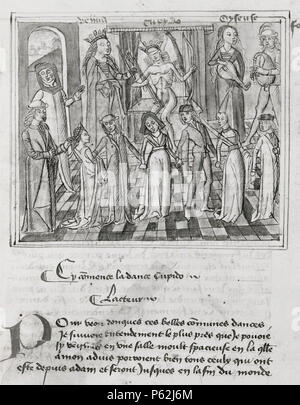 venus cupido Oyseuse
Cy comence la dance Cupido
Lacteur
Pour veoir donques ces belles comunes dances
Je fuz en entendement le plus pres que Je pouoie
en une salle moult spacieuse en la qlle
amon advis pouoient bien tous ceulx qui ont
este depuis adam et seront Jusques en la fin du monde
alamy
P62J6M